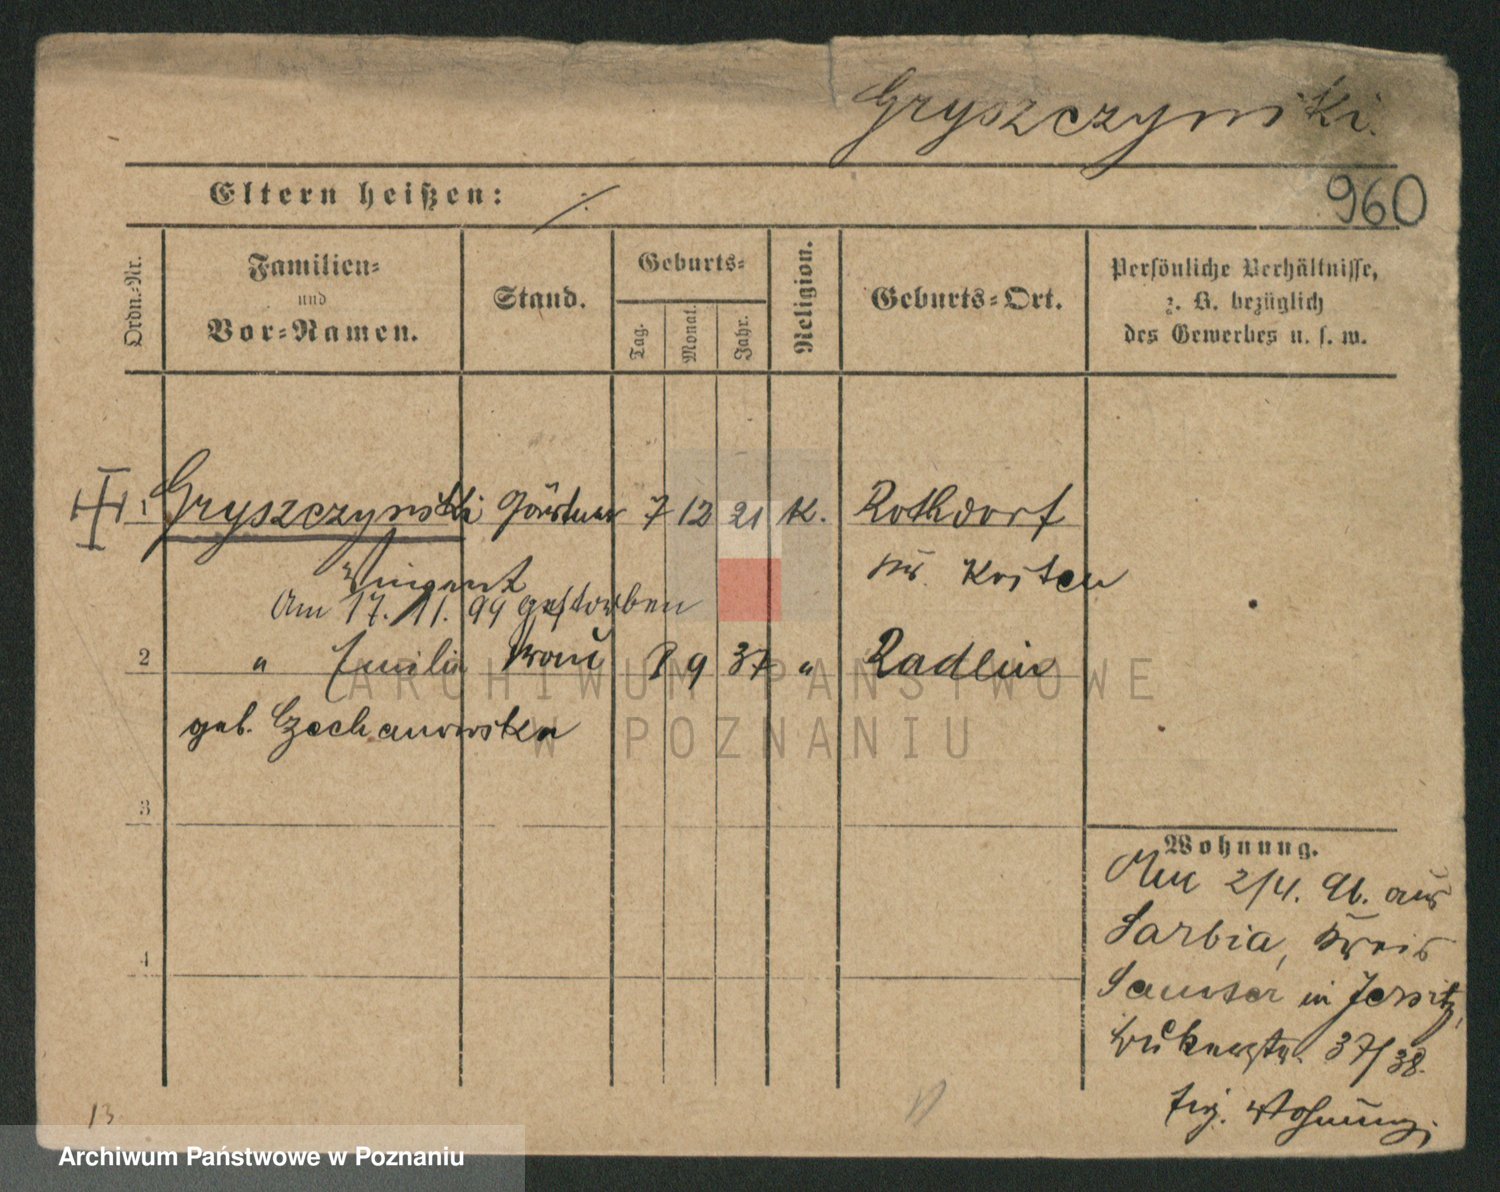 Gryszczynski.
Eltern heißen: ./.
960
Ordn.-Nr.
Familien-
und
Vor-Namen.
Stand.
Geburts-
Tag.
Monat.
Jahr.
Religion.
Geburts-Ort.
Persönliche Verhältnisse,
z. B. bezüglich
des Gewerbes u. s. w.
1 Gryszczynski Gärtner 7 12 21 K. Rothdorf
Vincent Kr. Kosten
Am 17. 11. 99 gestorben
2 " Emilie Frau 8 9 37 " Radlin
geb. Czechanowska
3
4
Wohnung.
Am 2/4. 96. aus
Sarbia, Kreis
Samter in Jersitz,
37/38.
Eig. Wohnung.
13
ARCHIWUM PAŃSTWOWE
W POZNANIU
Archiwum Państwowe w Poznaniu